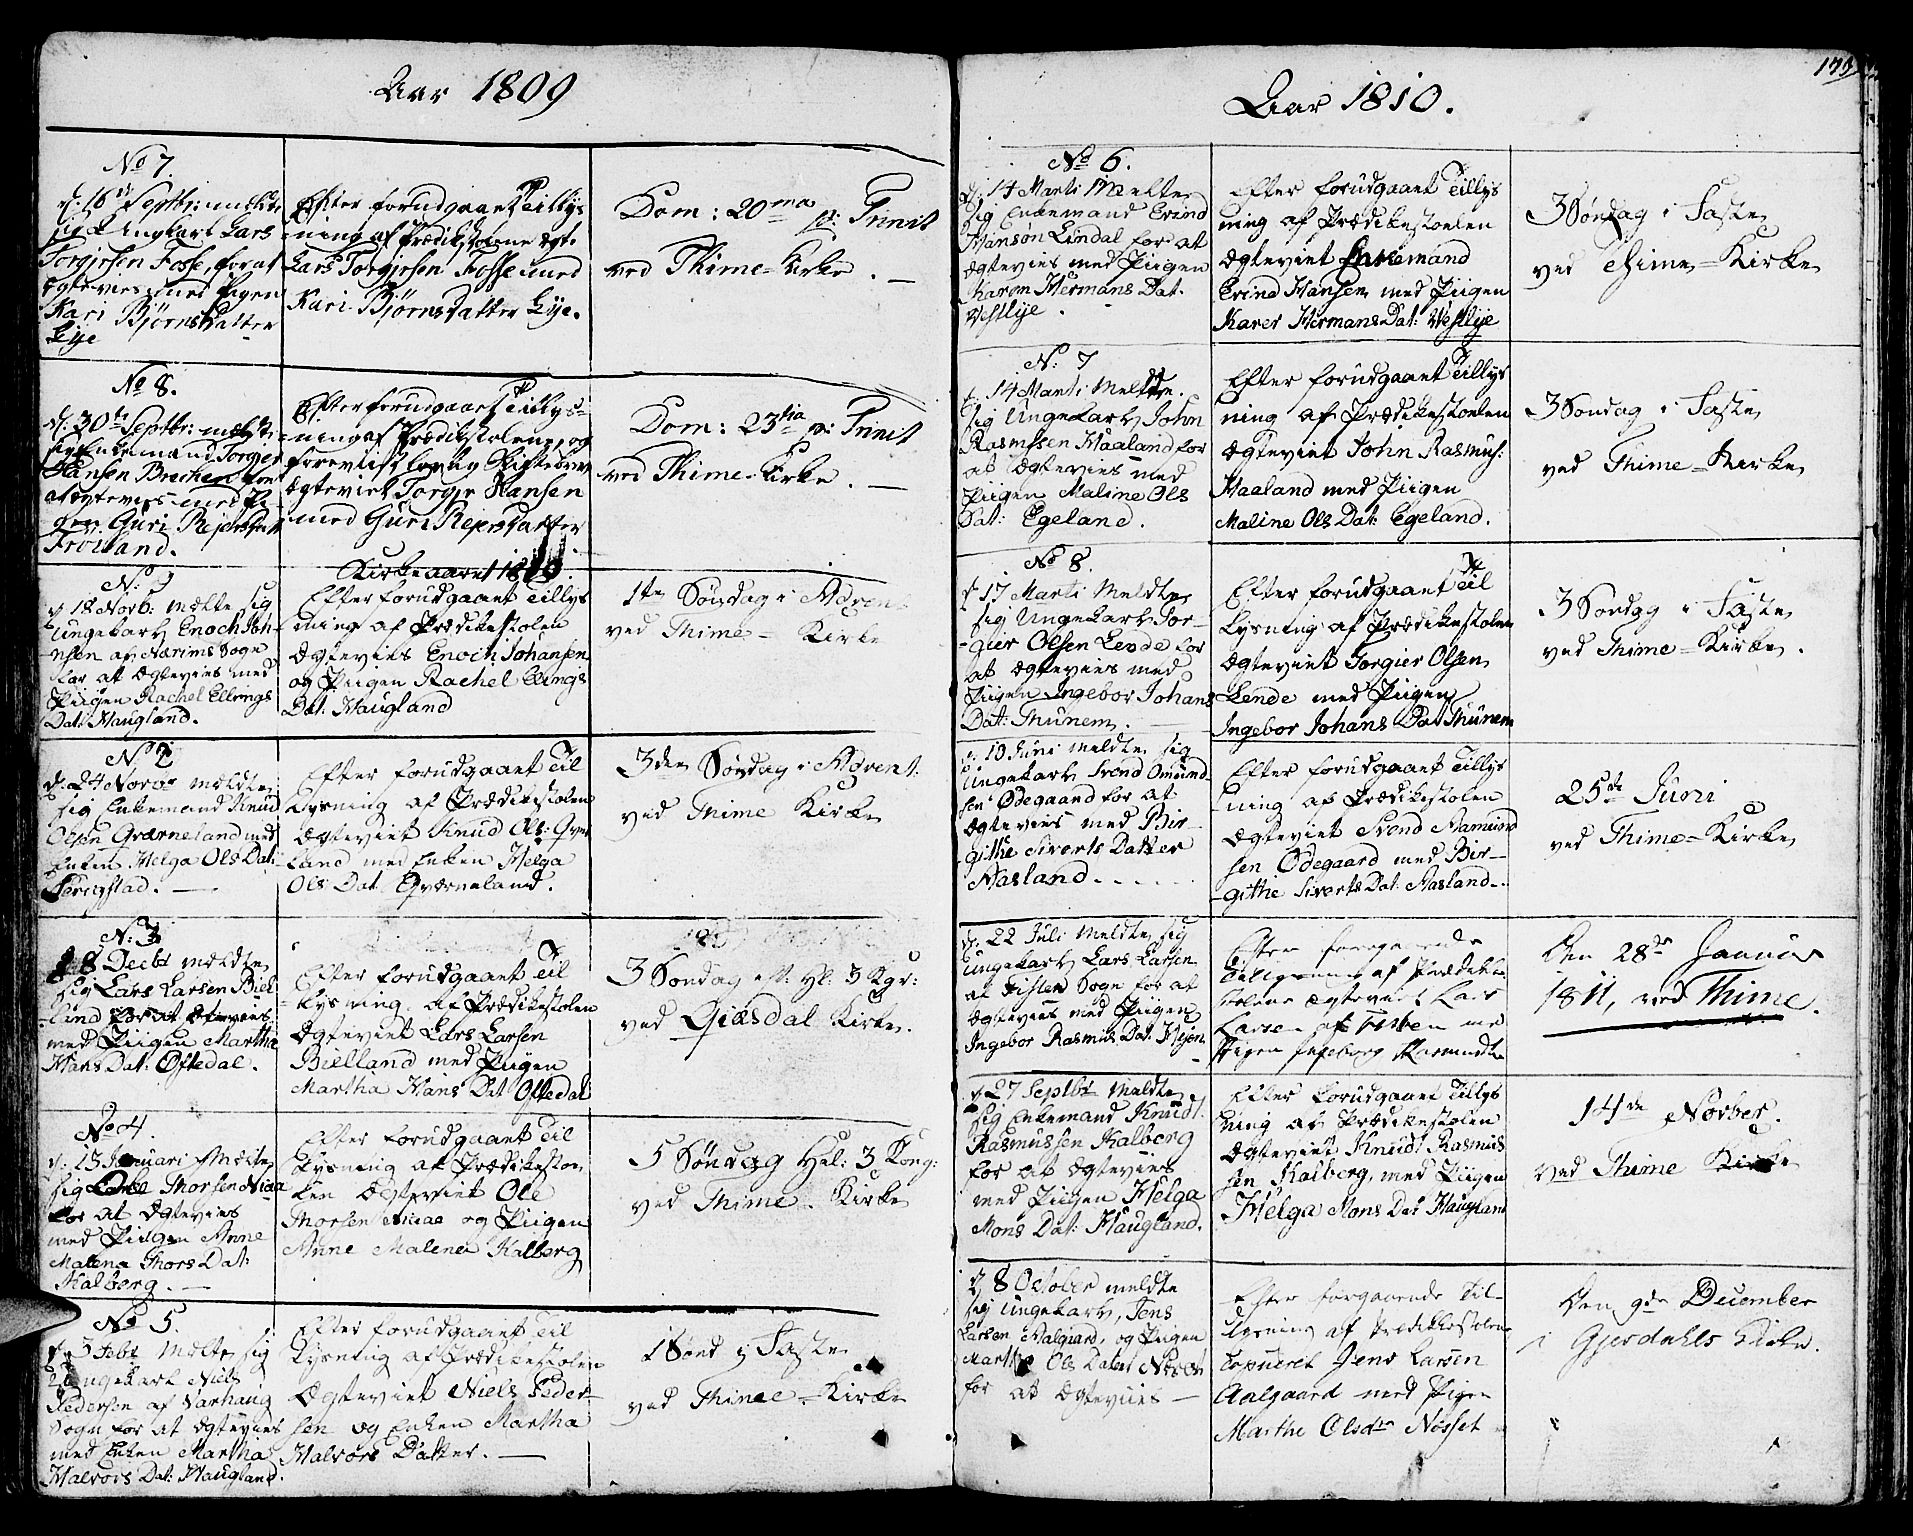 Aar 1809
No 7.
d: 16de Septbr: mældte
sig Ungkarl Lars
Torgjersen Fosse, for at
Ægtevies med Pigen
Kari Bjørns Datter
Lye
Efter forudgaaet Tillys
ning af Prædikestolene Ægt.
Lars Torgjersen Fosse med
Kari Bjørns Datter Lye.
Dom: 20ma p: Trinit
ved Thime-Kirke.
No 8.
d: 30te Septbr: mældte
sig Enkemand Torgier
Hansen Brechen for
at Ægtevies med Pi-
gen Guri Rejersdatt
Froiland.
Efter forudgaaet Tillys-
ning af Prædikestolene, og
foreviist lovlig Skiftebrev
Ægteviet Torgjr Hansen
med Guri Rejersdatter
Dom: 23tia p: Trinit
ved Thime-Kirke.
Kirkeaaret 1810
N: 1
d 18 Novb: mælte sig
Ungekarl Enoch Joh-
nsen af Nærims Sogn
for at Ægtevies med
Piigen Rachel Ellings
Dat: Haugland.
Efter forudgaaet Tillys
ning af Prædikestolen
Ægtevies Enoch Johansen
og Piigen Rachel Elings
Dat: Haugland
1te Søndag i Adven
ved Thime-Kirke
N: 2
d: 24 Novbr mældte
sig Enkemand Knud
Olsen Qværneland med
Enken Helga Ols Dat:
Serigstad.
Efter forudgaaet Til
Lysning af Prædikestolen
Ægteviet Knud Ols: Qvær
land med Enken Helga
Ols Dat Qværneland.
3den Søndag i Advent.
ved Thime Kirke
N: 3
d 8 Decbr mældte
sig Lars Larsen Biel
land for at Ægtevies
med Piigen Martha
Hans Dat: Oftedal.
Efter forudgaaet Til
Lysning af Prædikestolen
Ægteviet Lars Larsen
Bielland med Piigen
Martha Hans Dat Oftedal
3 Søndag eft: Hel: 3 Kgr:
ved Giæsdal Kirke.
No 4.
d: 13 Januari Mælte
sig Ole Thorsen Niaa
for at Ægtevies
med Piigen Anne
Malena Thors Dat:
Kalberg.
Efter forudgaaet Til
Lysning af Prædikesto
len Ægteviet Ole
Thorsen Niaae og Piigen
Anne Malene Kalberg
5 Søndag Hel: 3 Kong:
ved Thime-Kirke
No 5.
d 3 Febr Mælte sig
Ungekarl Niels
Pedersen af Varhaug
Sogn for at Ægtevies
med Enken Martha
Halvors Dat: Haugland.
Efter forudgaaet Til
Lysning af Prædikestolen
Ægteviet Niels Peder-
sen og Enken Martha
Halvors Datter.
1 Sønd i Faste
ved Thimee-Kirke
Aar 1810.
No 6.
d: 14 Marti Melte
sig Enkemand Erind
Hansøn Lindal for at
Ægtevies med Piigen
Karon Hermans Dat.
Vestlye.
Efter forudgaaet Tillys
ning af Prædikestoelen
Ægteviet Enkemand
Erind Hansen med Piigen
Karen Hermans Dat: Vestlye
3 Søndag i Faste
ved Thime-Kirke
N: 7
d. 14 Marti Meldte
sig Ungekarl John
Rasmssen Haaland for
at Ægtevies med
Piigen Maline Ols
Dat: Egeland.
Efter forudgaaet Tillys
ning af Prædikestoelen
Ægteviet John Rasmus:
Haaland med Piigen
Maline Ols Dat: Egeland.
3 Søndag i Faste
ved Thime-Kirke
No 8.
d 17 Marti Meldte
sig Ungekarl Tor-
gier Olsen Lende for
at Ægtevies med
Piigen Ingebor Johans
Dat: Thunem.
Efter forudgaaet Til
Lysning af Prædikestolen
Ægteviet Torgier Olsen
Lende med Piigen
Ingebor Johans Dat Thunem
3 Søndag i Faste
ved Thime-Kirke.
d: 10 Juni Meldte sig
Ungekarl Svend Omund-
sen Ødegaard for at
Ægtevies med Bir-
githe Siverts Datter
Aasland
Efter forudgaaet Tillys
ning af Prædikestolen
Ægteviet Svend Aamund
sen Ødegaard med Bir-
githe Siverts Dat: Aasland
25de Juni
ved Thime-Kirke
d: 22 Juli Meldte sig
Ungekarl Lars Larsen
af Sogn for at
Ægtevies med Piigen
Ingebor Rasmus Dat:
Efter foregaaende
Tillysning af Prædike
stolen Ægteviet Lars
Larsen af med
Pigen Ingeborg Rasmusdtr
Den 28de Januar
1811, ved Thime.
d 27 Septbr Meldte
sig Enkemand Knudt
Rasmussen Kalberg
for at Ægtevies
med Piigen Helga
Mons Dat: Haugland.
Efter forudgaaet Tillys
ning af Prædikestolen
Ægteviet Knudt Rasmus
sen Kalberg, med Piigen
Helga Mons Dat Haugland
14de Novber.
ved Thime Kirke
d 8 October meldte
sig Ungekarl Jens
Larsen Aalgaard, og Piigen
Martha Ols Dater
for at Ægteviies
Efter forgaaende Til-
lysning af Prædikestolen
Copuleret Jens Larsen
Aalgaard med Pigen
Marthe Olsdtr Nosset
Den 9de December
i Gjesdahls Kirke.